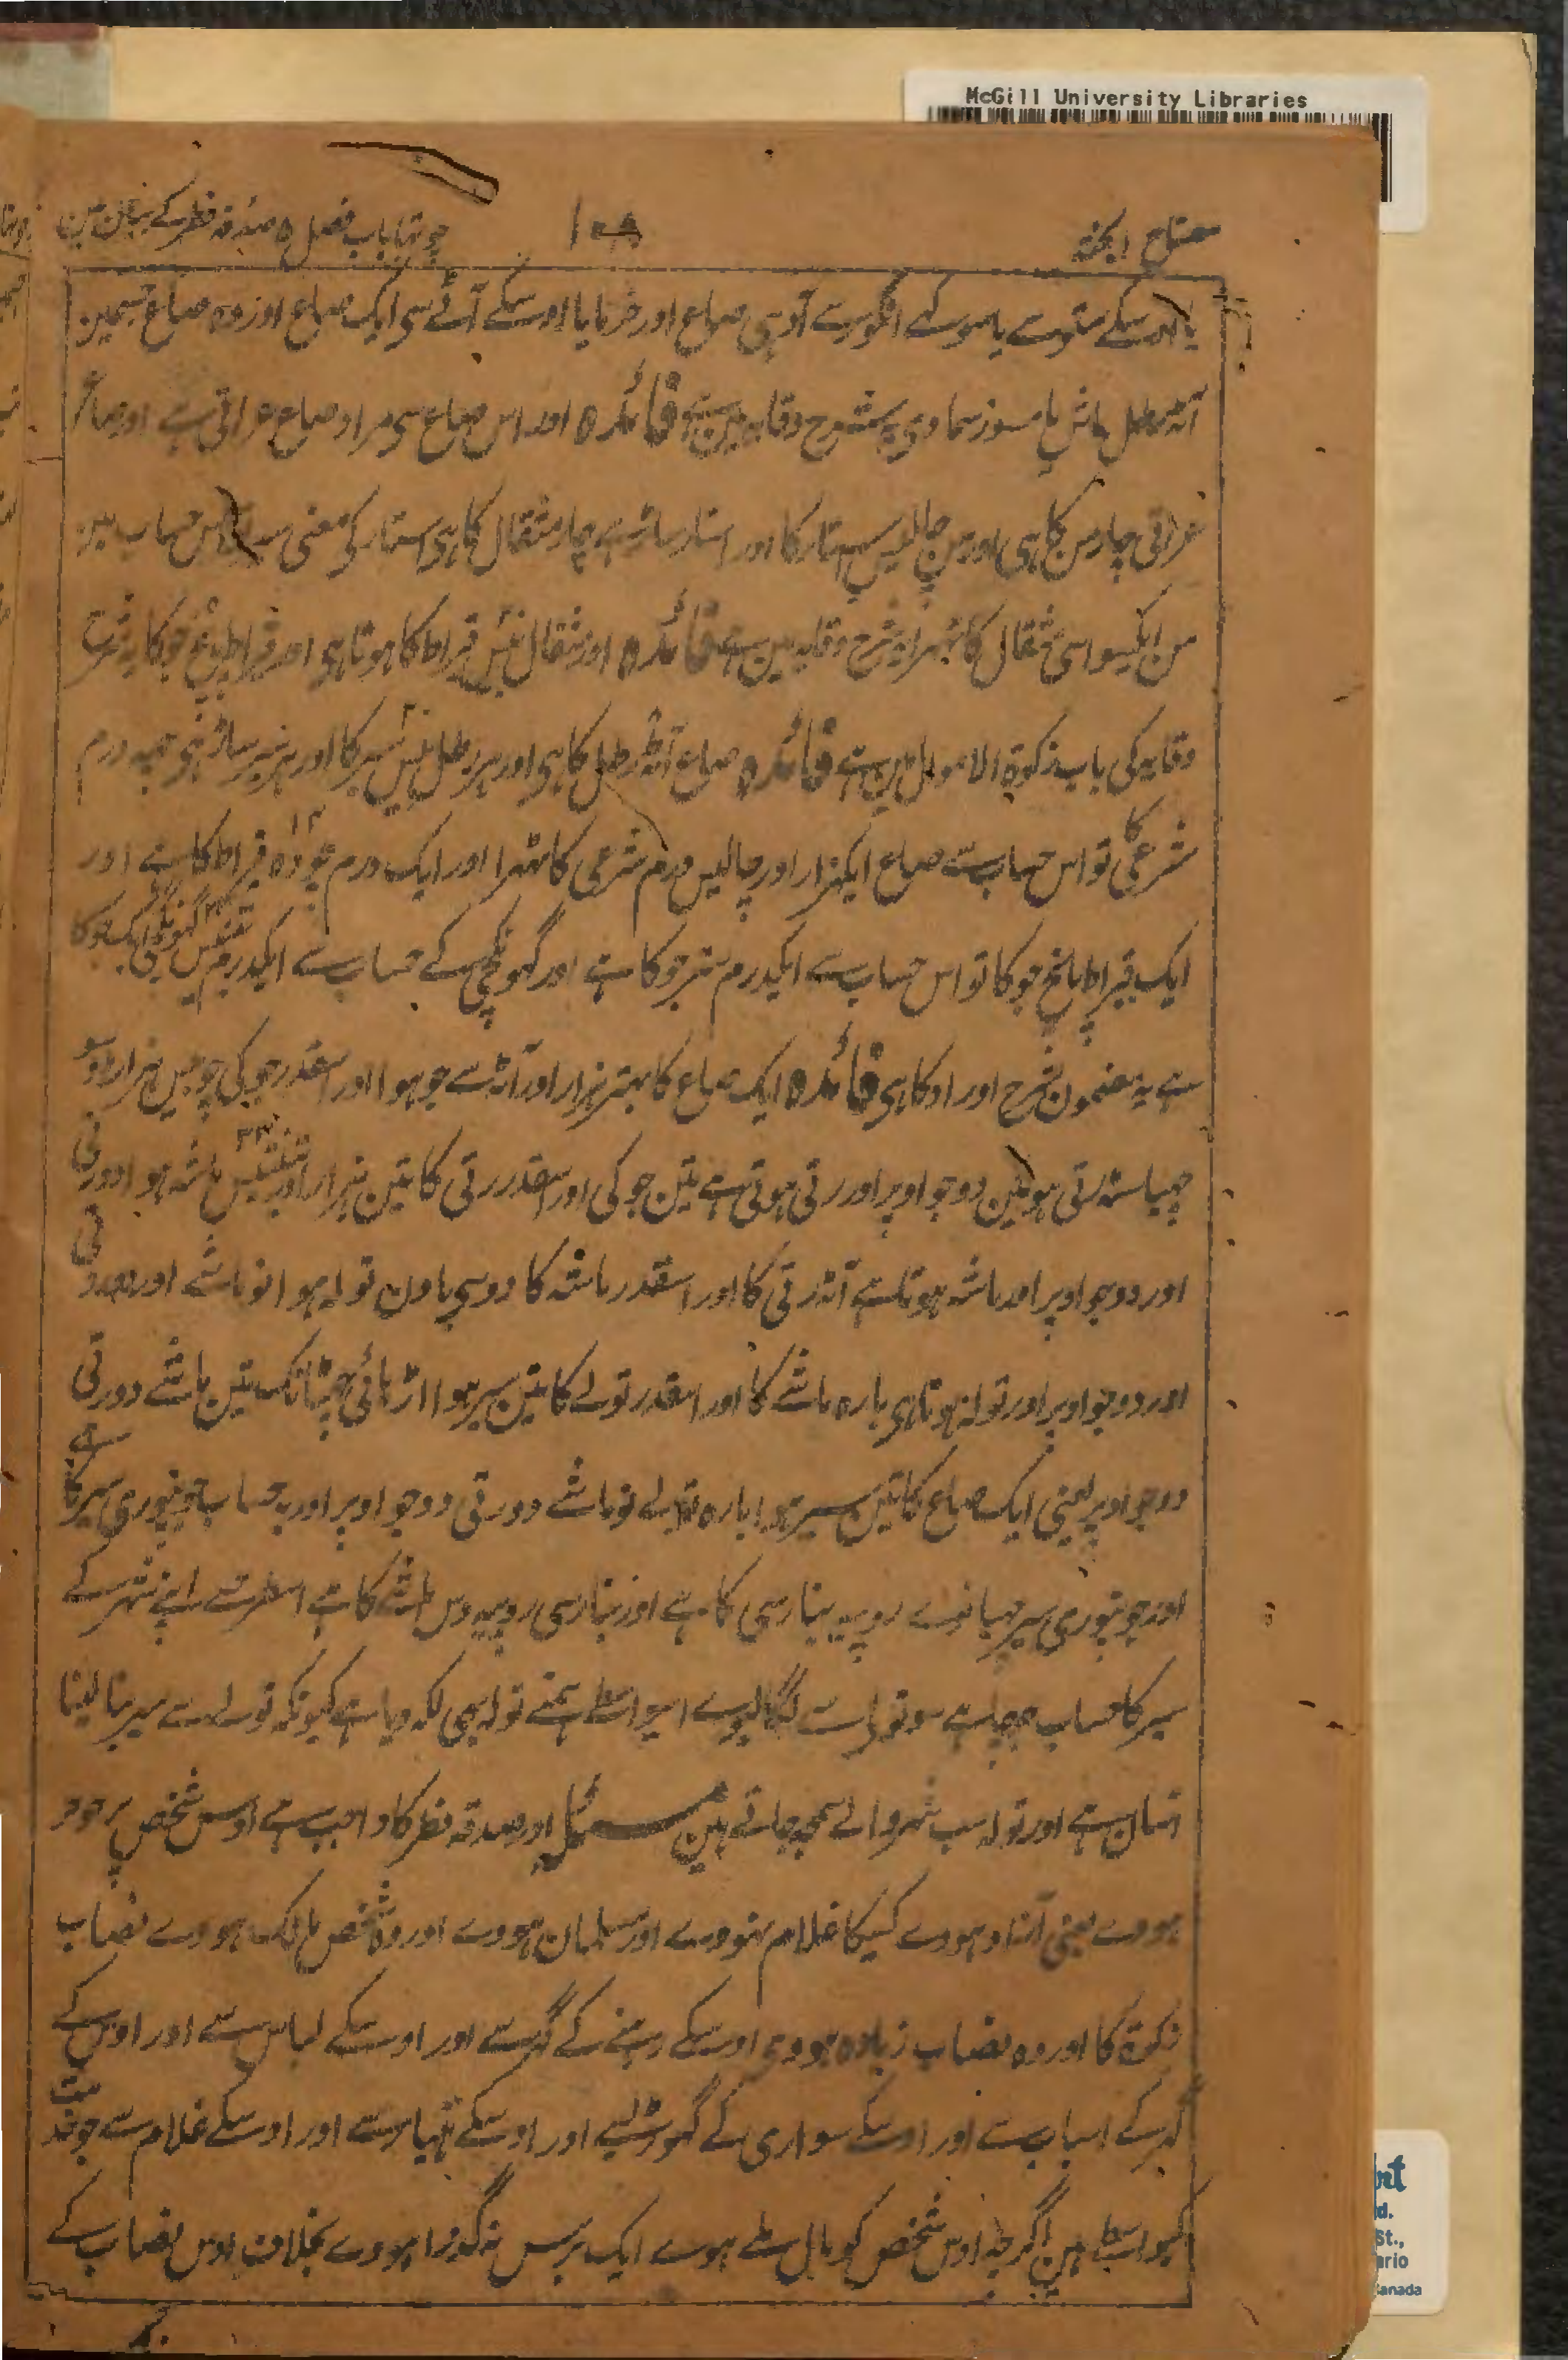 McGill University Libraries
مفتاح الجنة
۱۰۸
چوتھا باب فصل ۵ صدقہ فطر کے بیان مین
یا اوسکے ستوسے یا سوکے انگورسے آدہی صاع اور خرمایا اوسکے آٹےسی ایک صاع اور وہ صاع جسمین
آٹہ رطل ماش یا مسور سماوی یہ شرح وقایہ مین ہے فائدہ اور اس صاع سی مراد صاع عراقی ہے اور صاع
عراقی چار من کا ہی اور من چالیس استار کا اور استار ساڑہے چار مثقال کا ہی استار کی معنی اس حساب مین
من ایکسو اسی مثقال کا ٹہرا یہ شرح وقایہ مین ہے فائدہ اور مثقال بیس قیراط کا ہوتا ہی اور قیراط پانچ جو کا یہ شرح
وقایہ کی باب زکوۃ الاموال مین ہے فائدہ صاع آٹھ رطل کا ہی اور ہر رطل بیس سیر کا اور ہر سیر ساڑہی چہہ درم
شرعی کا تو اس حساب سے صاع ایکہزار اور چالیس درم شرعی کا ٹہرا اور ایک درم چودہ ۱۴ قیراط کا ہے اور
ایک قیراط پانچ جو کا تو اس حساب سے ایکدرم ستر جو کا ہے اور گہونگچی کے حساب سے ایکدرم
ہے یہ مضمون شرح اوراد کا ہی فائدہ ایک صاع کا بہتر ہزار اور آٹہ سے جو ہوا اور اسقدر جو کی چوبیس ہزار دوسو
چہیاسٹہ رتی ہوئین دو جو اوپر اور رتی ہوتی ہے تین جو کی اور اسقدر رتی کا تین ہزار اور تینتیس ۳۳ ماشہ ہوا دو رتی
اور دو جو اوپر اور ماشہ ہوتا ہے آٹہ رتی کا اور اسقدر ماشہ کا دوسی باون تولہ ہوا نو ماشے اور دو رتی
اور دو جو اوپر اور تولہ ہوتا ہی بارہ ماشے کا اور اسقدر تولے کا تین سیر ہوا اڑہائی چہٹانک تین ماشے دو رتی
دو جو اوپر یعنی ایک صاع کا تین سیر ہوا بارہ تولے نو ماشے دو رتی دو جو اوپر اور یہ حساب جونپوری سیر کا ہے
اور جونپوری سیر چہیانوے روپیہ بنارسی کا ہے اور بنارسی روپیہ دس ماشے کا ہے اسطرحسے اپنے شہر کے
سیر کا حساب جو چاہے سو تولے سے لگا لیوے اسیواسطے ہمنے تولہ بھی لکھ دیا ہے کیونکہ تولے سے سیر بنا لینا
آسان ہے اور تولہ سب شہر والے سمجھ جاتے ہین مسئلہ اور صدقہ فطر کا واجب ہے اوس شخص پر جو حر
ہووے یعنی آزاد ہووے کسیکا غلام نہووے اور مسلمان ہووے اور وہ شخص مالک ہووے نصاب
زکوۃ کا اور وہ نصاب زیادہ ہووی اوسکے رہنے کے گھرسے اور اوسکے لباس سے اور اوس کے
گھر کے اسباب سے اور اوسکے سواری کے گھوڑیسے اور اوسکے ہتیارسے اور اوسکے غلام سے جو خدمت
کیواسطے ہین اگرچہ اوس شخص کو مال ملے ہوے ایک برس نہ گذرا ہووے بخلاف اوس نصاب کے